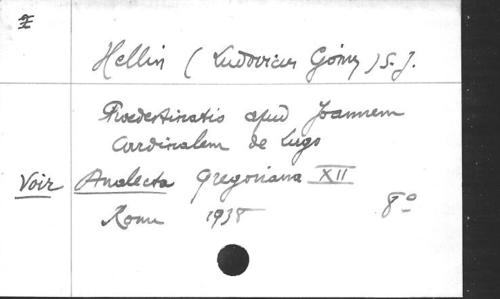 Hellin (Ludovicus Gómez) S. J.
Praedestinatio apud Joannem
Cardinalem de Lugo
Voir Analecta Gregoriana XII
Rome 1938 8°